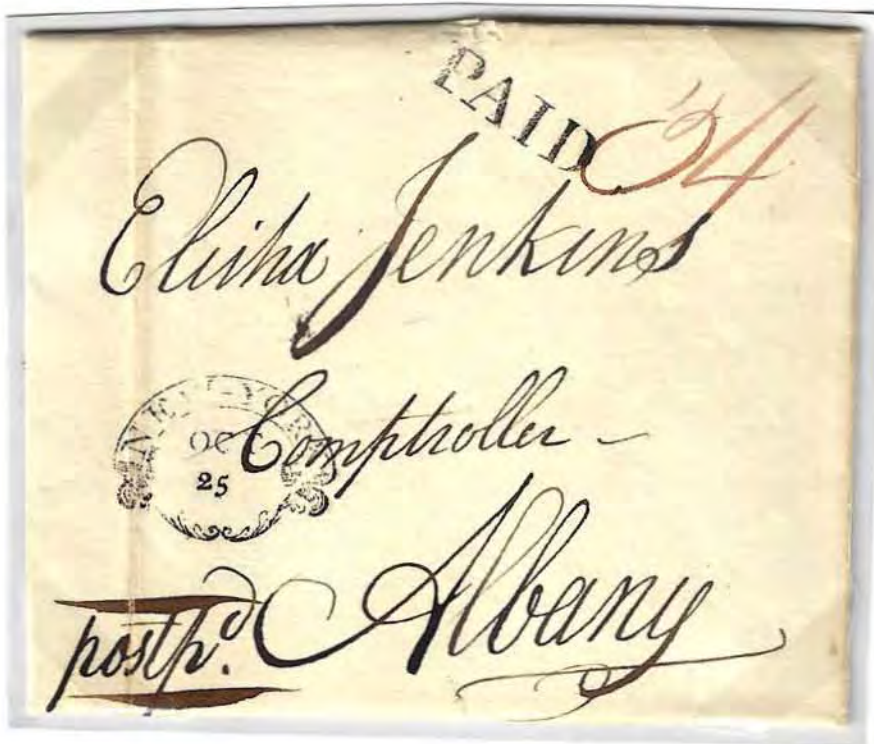 PAID 34
Elisha Jenkins
NEW-YORK
OCT
25
Comptroller -
Albany
postpd.